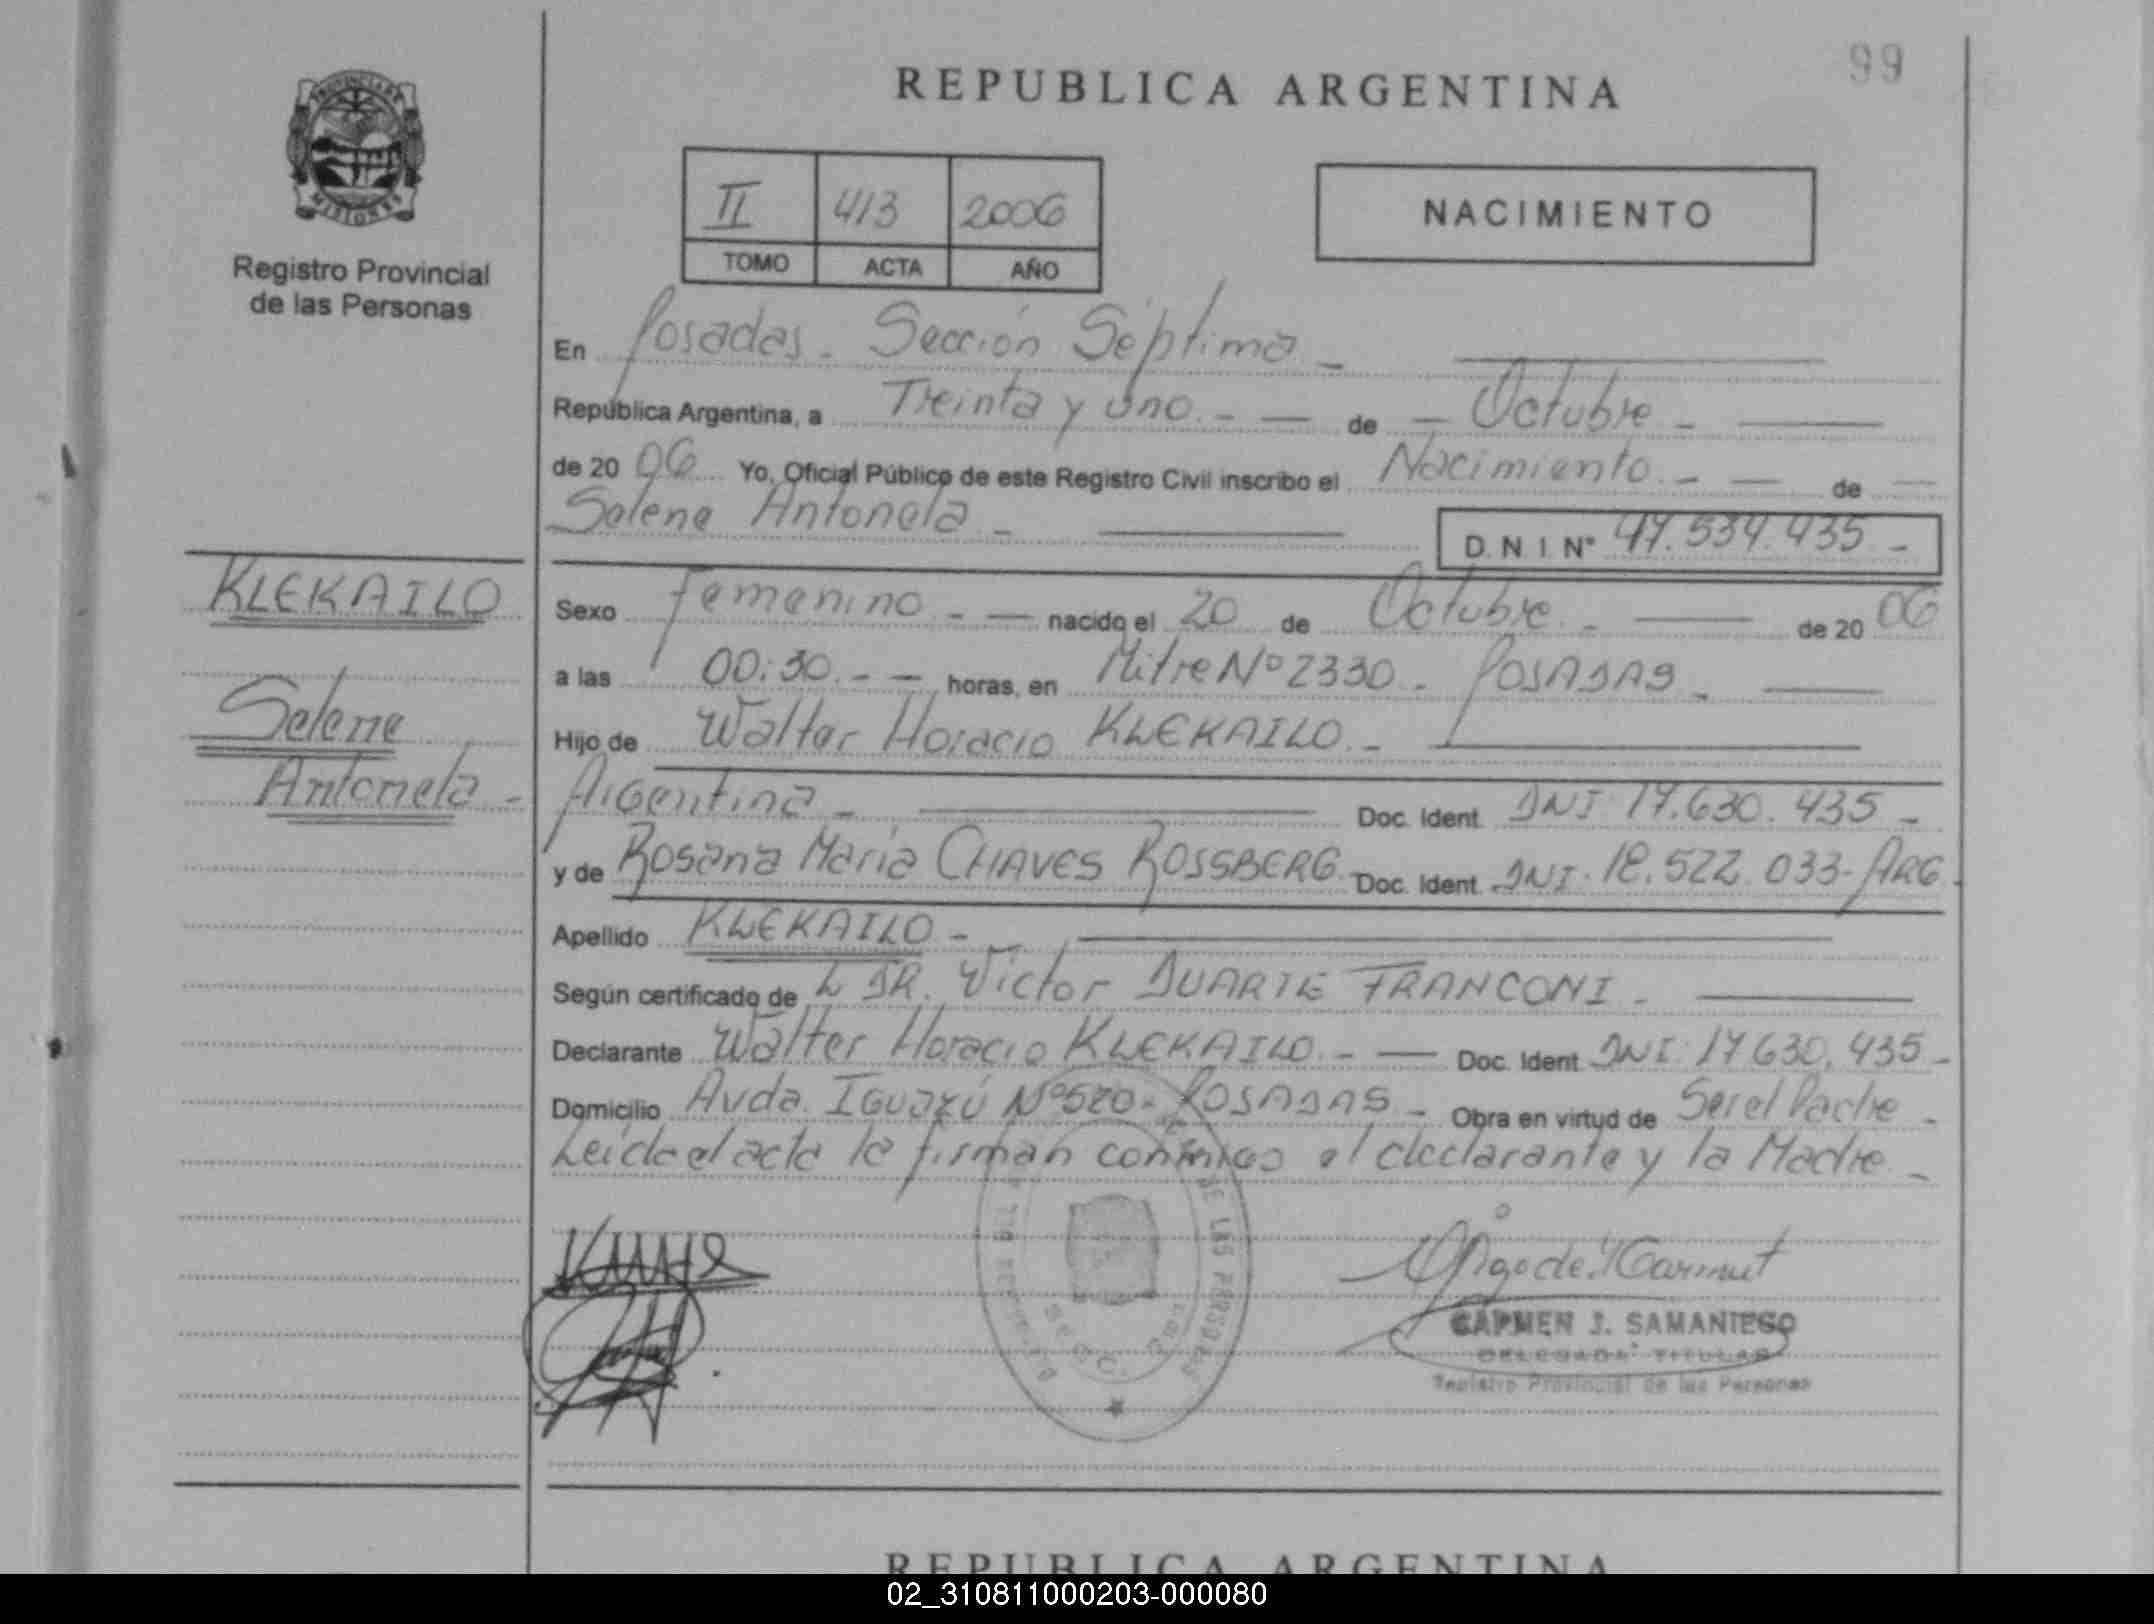 99
REPUBLICA ARGENTINA
PROVINCIA DE
MISIONES
II 413 2006
TOMO ACTA AÑO
NACIMIENTO
Registro Provincial
de las Personas
En Posadas - Sección Séptima -
República Argentina, a Treinta y Uno.- — de — Octubre - —
de 2006 Yo, Oficial Público de este Registro Civil inscribo el Nacimiento.- — de —
Selene Antonela - —
D. N. I. Nº 47.534.435 -
KLEKAILO
Selene
Antonela -
Sexo Femenino - — nacido el 20 de Octubre. - — de 2006
a las 00:30.- — horas, en Mitre Nº 2330 - POSADAS - —
Hijo de Walter Horacio KLEKAILO. - —
Argentina - — Doc. Ident. DNI 17.630.435 -
y de Rosana María CHAVES ROSSBERG - Doc. Ident. DNI. 18.522.033- ARG.
Apellido KLEKAILO - —
Según certificado de DR. Victor DUARTE FRANCONI - —
Declarante Walter Horacio KLEKAILO. - — Doc. Ident. DNI. 17.630.435 -
Domicilio Avda. IGUAZÚ Nº 520- POSADAS - Obra en virtud de Ser el Padre -
Leida el acta la firman conmigo el declarante y la Madre -
DE LAS PERSONAS
CARMEN J. SAMANIEGO
DELEGADA TITULAR
Registro Provincial de las Personas
REPUBLICA ARGENTINA
02_310811000203-000080